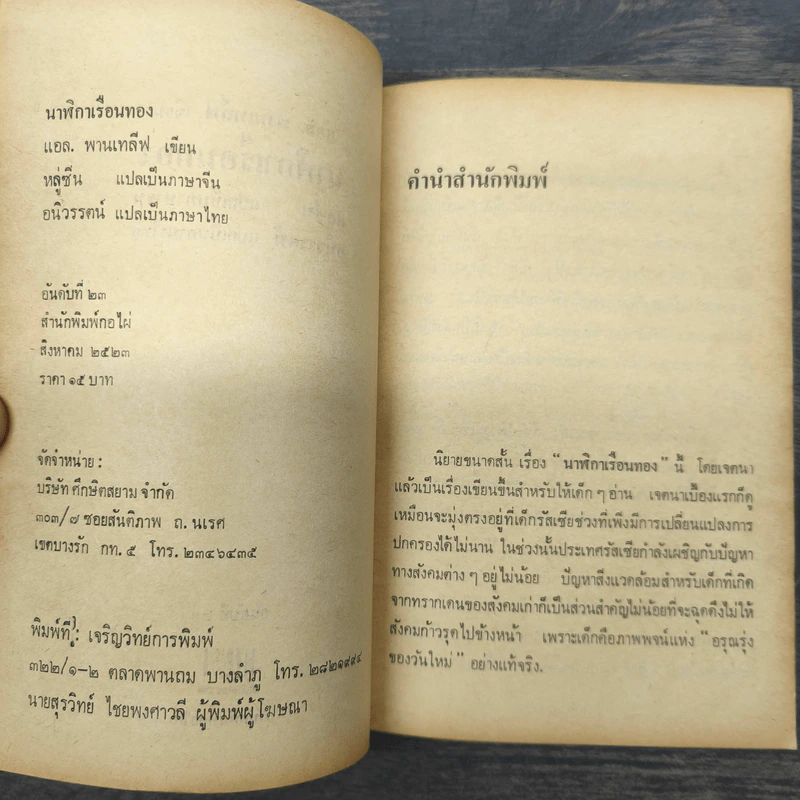 นาฬิกาเรือนทอง
แอล. พานเทลีฟ เขียน
หลู่ซึ่น แปลเป็นภาษาจีน
อนิวรรตน์ แปลเป็นภาษาไทย
อันดับที่ ๒๓
สำนักพิมพ์กอไผ่
สิงหาคม ๒๕๒๓
ราคา ๑๕ บาท
จัดจำหน่าย :
บริษัท ศึกษิตสยาม จำกัด
๓๐๓/๗ ซอยสันติภาพ ถ. นเรศ
เขตบางรัก กท. ๕ โทร. ๒๓๔๖๔๓๕
พิมพ์ที่ : เจริญวิทย์การพิมพ์
๓๒๒/๑-๒ ตลาดพานถม บางลำภู โทร. ๒๘๒๑๙๙๔
นายสุรวิทย์ ไชยพงศาวลี ผู้พิมพ์ผู้โฆษณา
คำนำสำนักพิมพ์
นิยายขนาดสั้น เรื่อง “นาฬิกาเรือนทอง” นี้ โดยเจตนา
แล้วเป็นเรื่องเขียนขึ้นสำหรับให้เด็ก ๆ อ่าน เจตนาเบื้องแรกก็ดู
เหมือนจะมุ่งตรงอยู่ที่เด็กรัสเซียช่วงที่เพิ่งมีการเปลี่ยนแปลงการ
ปกครองได้ไม่นาน ในช่วงนั้นประเทศรัสเซียกำลังเผชิญกับปัญหา
ทางสังคมต่าง ๆ อยู่ไม่น้อย ปัญหาสิ่งแวดล้อมสำหรับเด็กที่เกิด
จากทรากเดนของสังคมเก่าก็เป็นส่วนสำคัญไม่น้อยที่จะฉุดดึงไม่ให้
สังคมก้าวรุดไปข้างหน้า เพราะเด็กคือภาพพจน์แห่ง “อรุณรุ่ง
ของวันใหม่” อย่างแท้จริง.